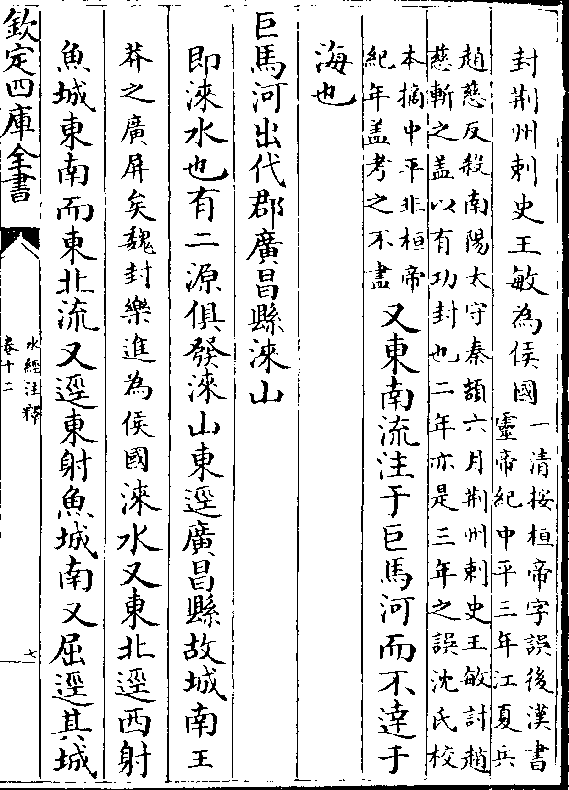 封荆州刺史王敏為侯國一清按桓帝字誤後漢書
靈帝紀中平三年江夏兵
趙慈反殺南陽太守秦頡六月荆州刺史王敏討趙
慈斬之盖以有功封也二年亦是三年之誤沈氏校
本摘中平非桓帝
紀年盖考之不盡又東南流注于巨馬河而不達于
海也
巨馬河出代郡廣昌縣淶山
即淶水也有二源俱發淶山東逕廣昌縣故城南王
莽之廣屏矣魏封樂進為侯國淶水又東北逕西射
魚城東南而東北流又逕東射魚城南又屈逕其城
欽定四庫全書
水經注釋
卷十二
七